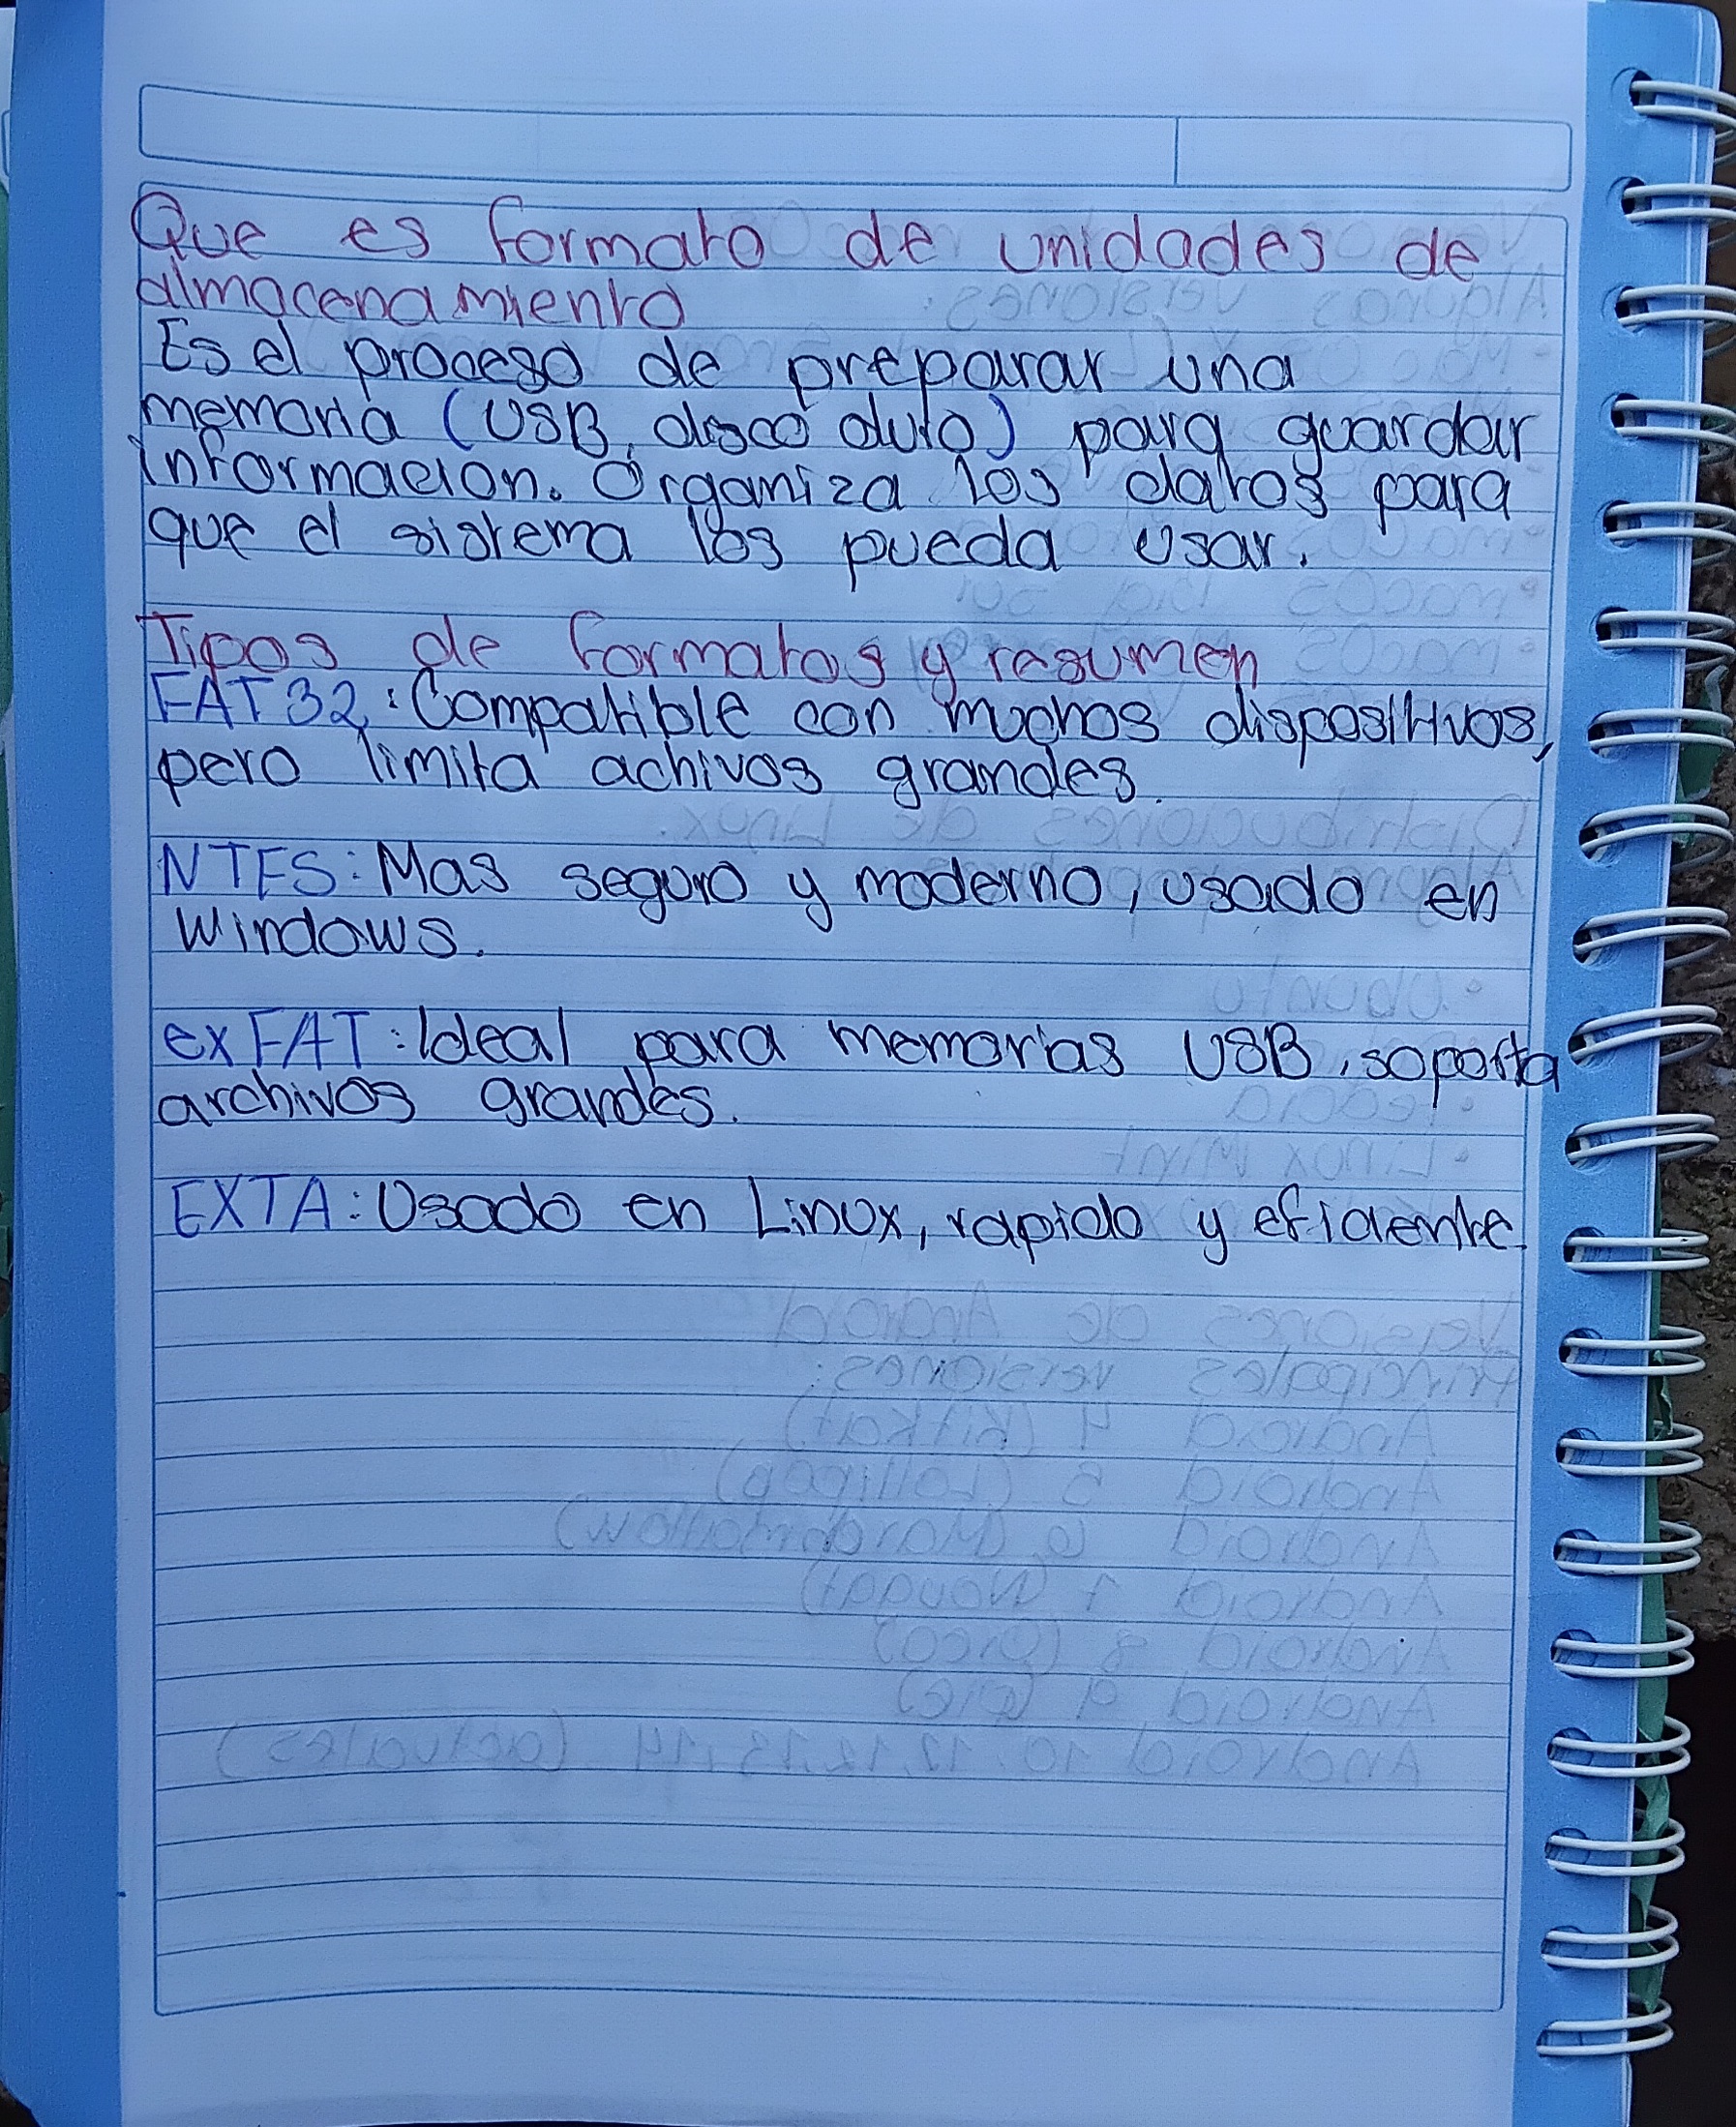 Que es formato de unidades de
almacenamiento
Es el proceso de preparar una
memoria (USB, disco duro) para guardar
informacion. Organiza los datos para
que el sistema los pueda usar.
Tipos de formatos y resumen
FAT32: Compatible con muchos dispositivos,
pero limita achivos grandes.
NTFS: Mas seguro y moderno, usado en
Windows.
exFAT: Ideal para memorias USB, soporta
archivos grandes.
EXTA: Usado en Linux, rapido y eficiente.